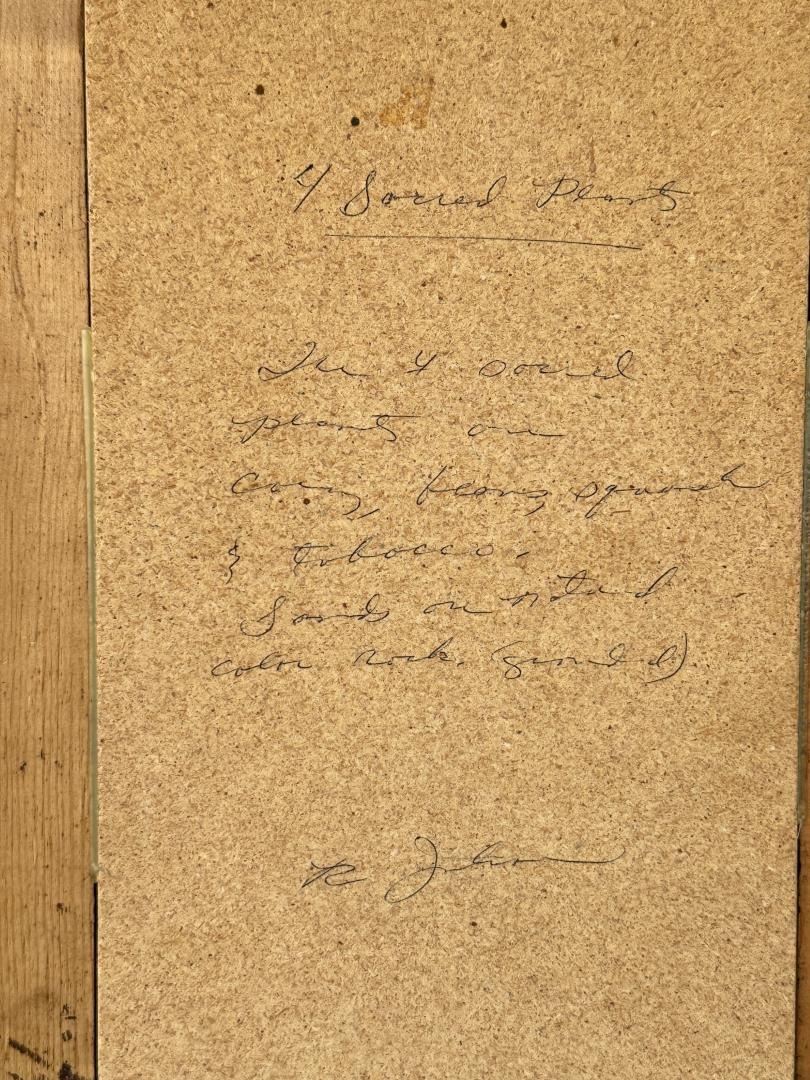 4 Sacred Plants
The 4 sacred
plants are
corn, beans, squash
& tobacco.
Sands are natural
color rock. (ground)
R Johnson